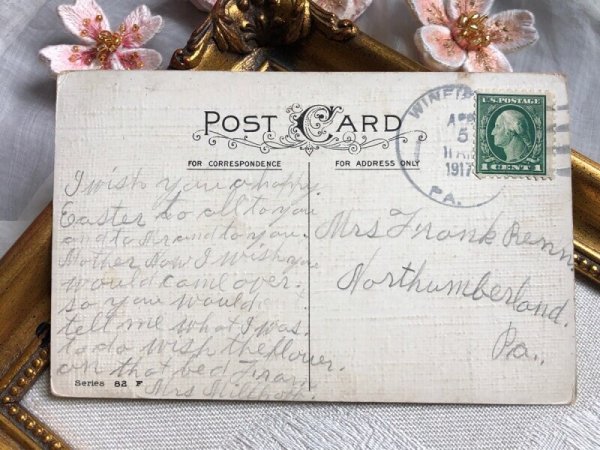 POST CARD
FOR CORRESPONDENCE
FOR ADDRESS ONLY
WINFI
APR
5
11 AM
1917
PA.
U.S. POSTAGE
1 CENT 1
I wish you a happy
Easter to all to you
and to and to you
Mother Now I wish you
would come over
so you would
tell me what I was
to do wish the flower
on that bed
Mrs
Mrs Frank Renn
Northumberland.
Pa.,
Series 82 F